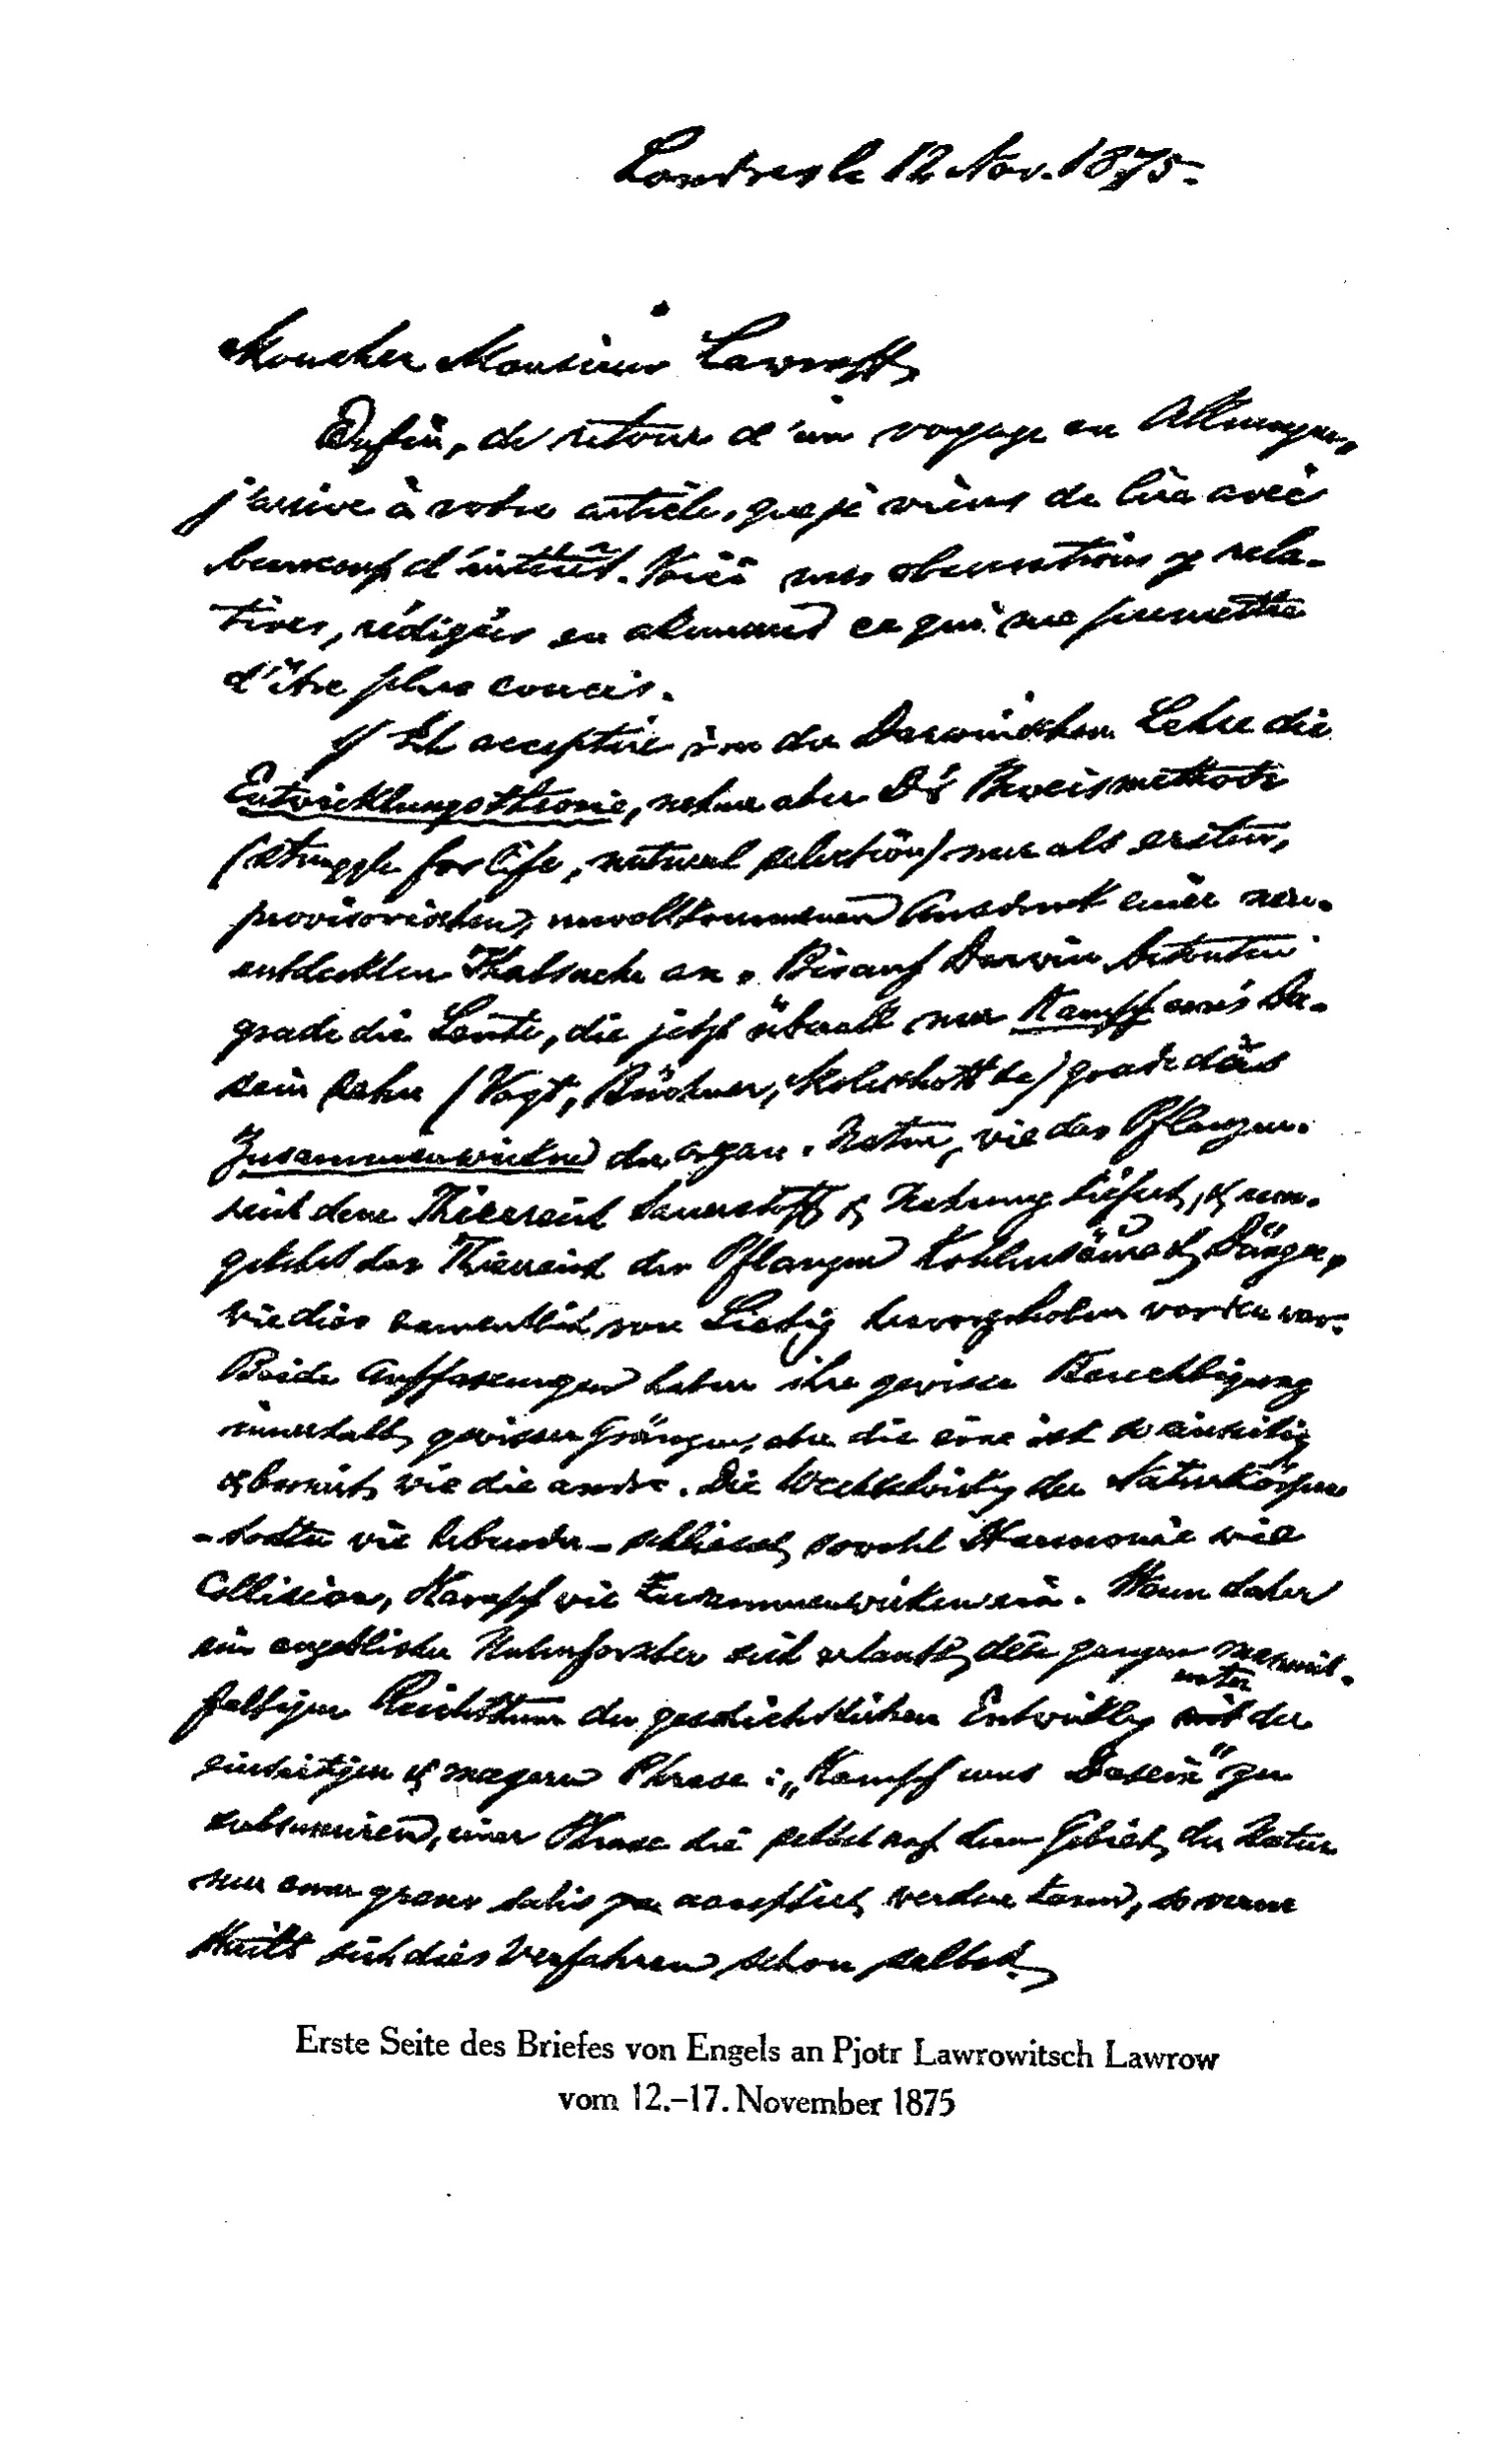 Londres le 12 Nov. 1875.
Mon cher Monsieur Lawroff,
Enfin, de retour d'un voyage en Allemagne,
j'arrive à votre article, que je viens de lire avec
beaucoup d'intérêt. Voici mes observations y rela-
tives, rédigées en allemand ce qui me permettra
d'être plus concis.
1) Ich acceptire von der Darwinschen Lehre die
Entwicklungstheorie, nehme aber D's Beweismethode
(struggle for life, natural selection) nur als ersten,
provisorischen, unvollkommenen Ausdruck einer neu-
entdeckten Thatsache an. Bis auf Darwin betonten
grade die Leute, die jetzt überall nur Kampf ums Da-
sein sehn (Vogt, Büchner, Moleschott &c) grade das
Zusammenwirken der organ. Natur, wie das Pflanzen-
reich dem Thierreich Sauerstoff & Nahrung liefert, & um-
gekehrt das Thierreich den Pflanzen Kohlensäure & Dünger,
wie dies namentlich von Liebig hervorgehoben worden war.
Beide Auffassungen haben ihre gewisse Berechtigung
innerhalb gewisser Gränzen, aber die eine ist so einseitig
& bornirt wie die andre. Die Wechselwirkg der Naturkörper
- todter wie lebender - schliesst sowohl Harmonie wie
Collision, Kampf wie Zusammenwirken ein. Wenn daher
ein angeblicher Naturforscher sich erlaubt, den ganzen mannich-
unter
faltigen Reichthum der geschichtlichen Entwicklg mit der
einseitigen & magern Phrase: „Kampf ums Dasein" zu
subsumiren, einer Phrase die selbst auf dem Gebiet der Natur
nur cum grano salis acceptirt werden kann, so verur
theilt sich dies Verfahren schon selbst.
Erste Seite des Briefes von Engels an Pjotr Lawrowitsch Lawrow
vom 12.–17. November 1875